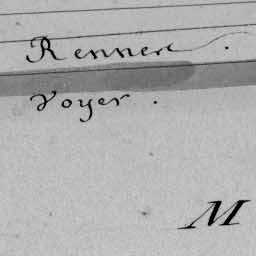 Rennere.
Voyer.
M